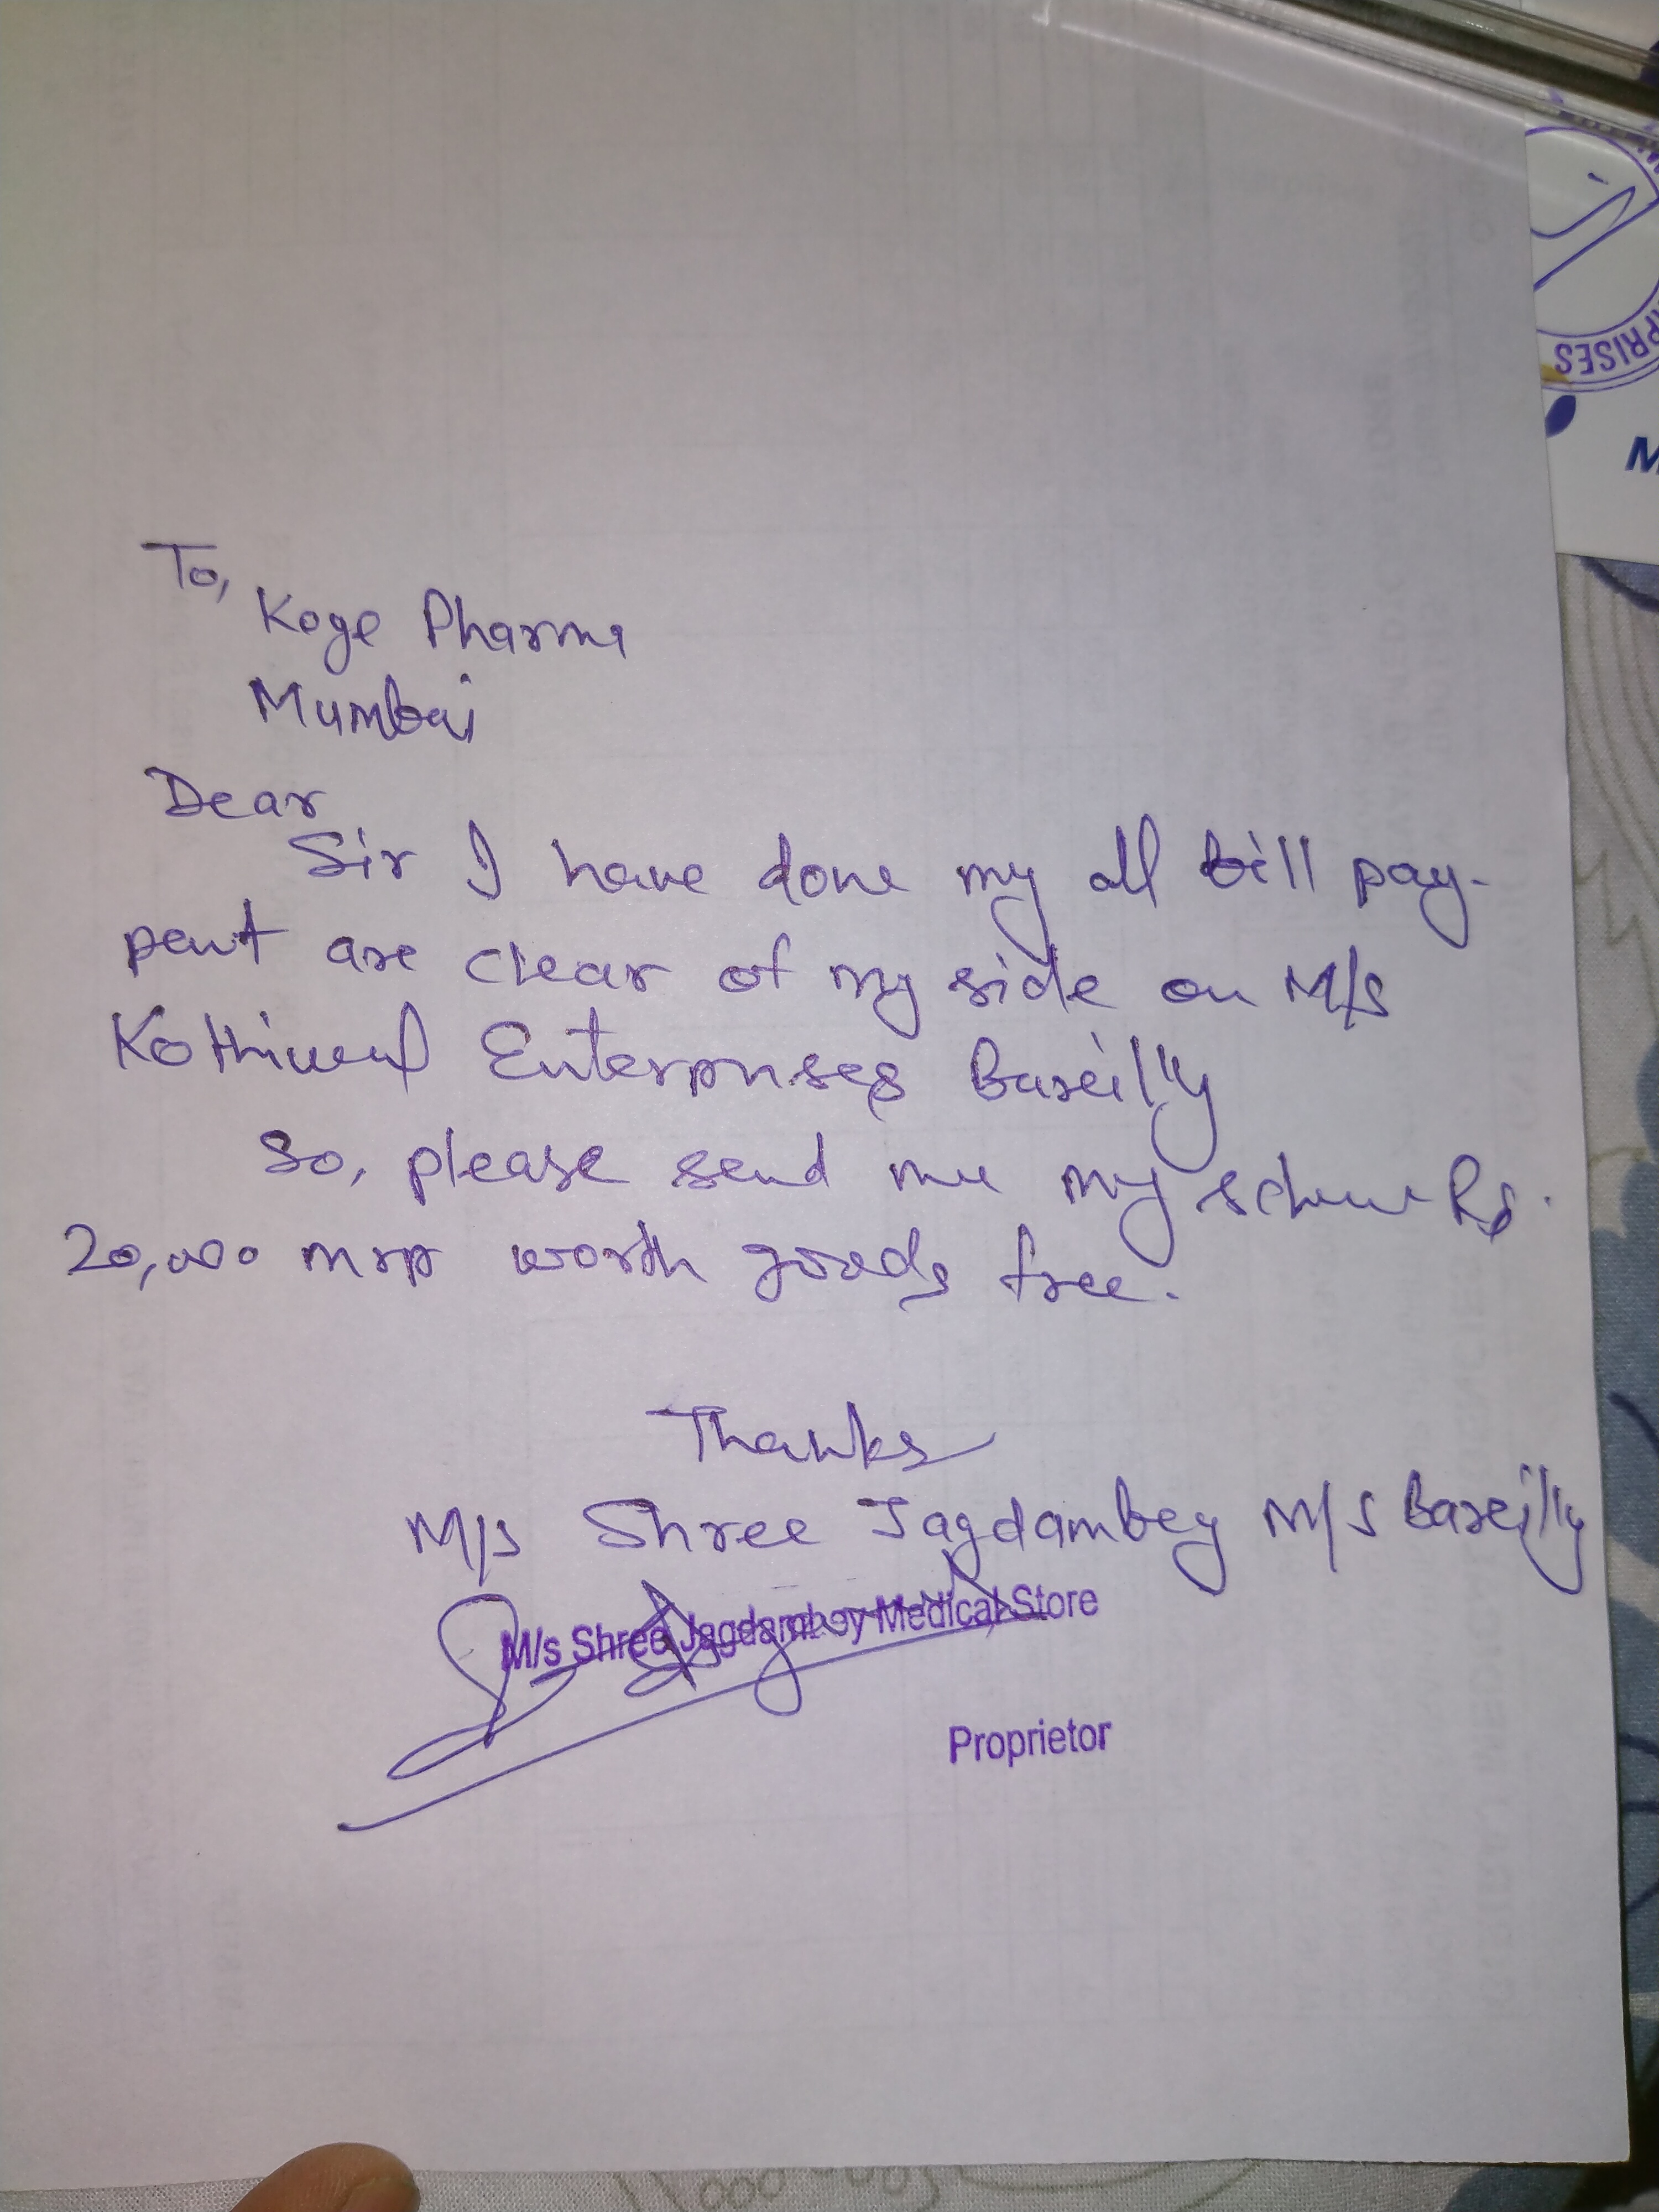 To,
Koge Pharma
Mumbai
Dear
Sir I have done my all bill pay-
pent are clear of my side on M/s
Kothiwal Enterprises Bareilly
So, please send me my scheme Rs.
20,000 mrp worth goods free.
Thanks
M/s Shree Jagdambey M/S Bareilly
M/s Shree Jagdambey Medical Store
Proprietor
PRISES
M